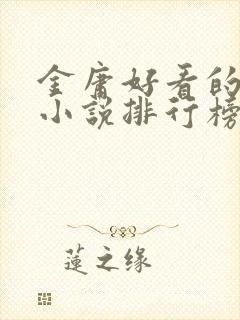 金庸好看的
小说排行榜
蓮之缘